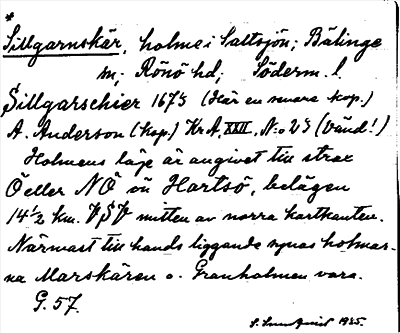 *
Sillgarnskär, holme i Saltsjön; Bälinge
sn; Rönö hd; Söderm. l.
Sillgarschier 1675 (Här en senare kop.)
A. Anderson (kop.) Kr A, XXII, N:o 25 (vänd!)
Holmens läge är angivet till strax
Ö eller NÖ om Hartsö, belägen
14 1/2 km. VSV mitten av norra kartkanten.
Närmast till hands liggande synas holmar-
na Marskären o. Granholmen vara.
G. 57.
S. 1925.